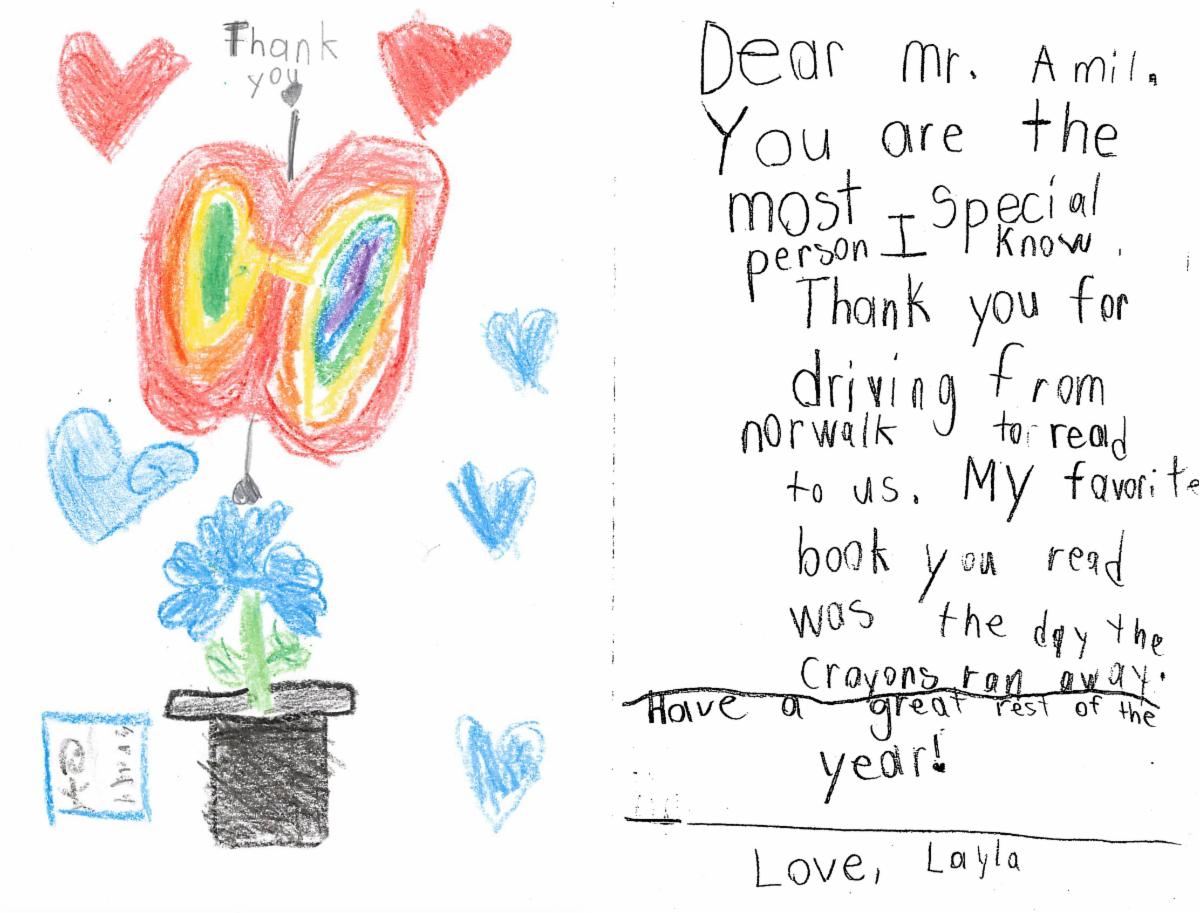 Thank
you
Dear mr. Amil.
You are the
most special
person I know.
Thank you for
driving from
norwalk to read
to us. My favorite
book you read
was the day the
crayons ran away.
Have a great rest of the
year!
Love, Layla